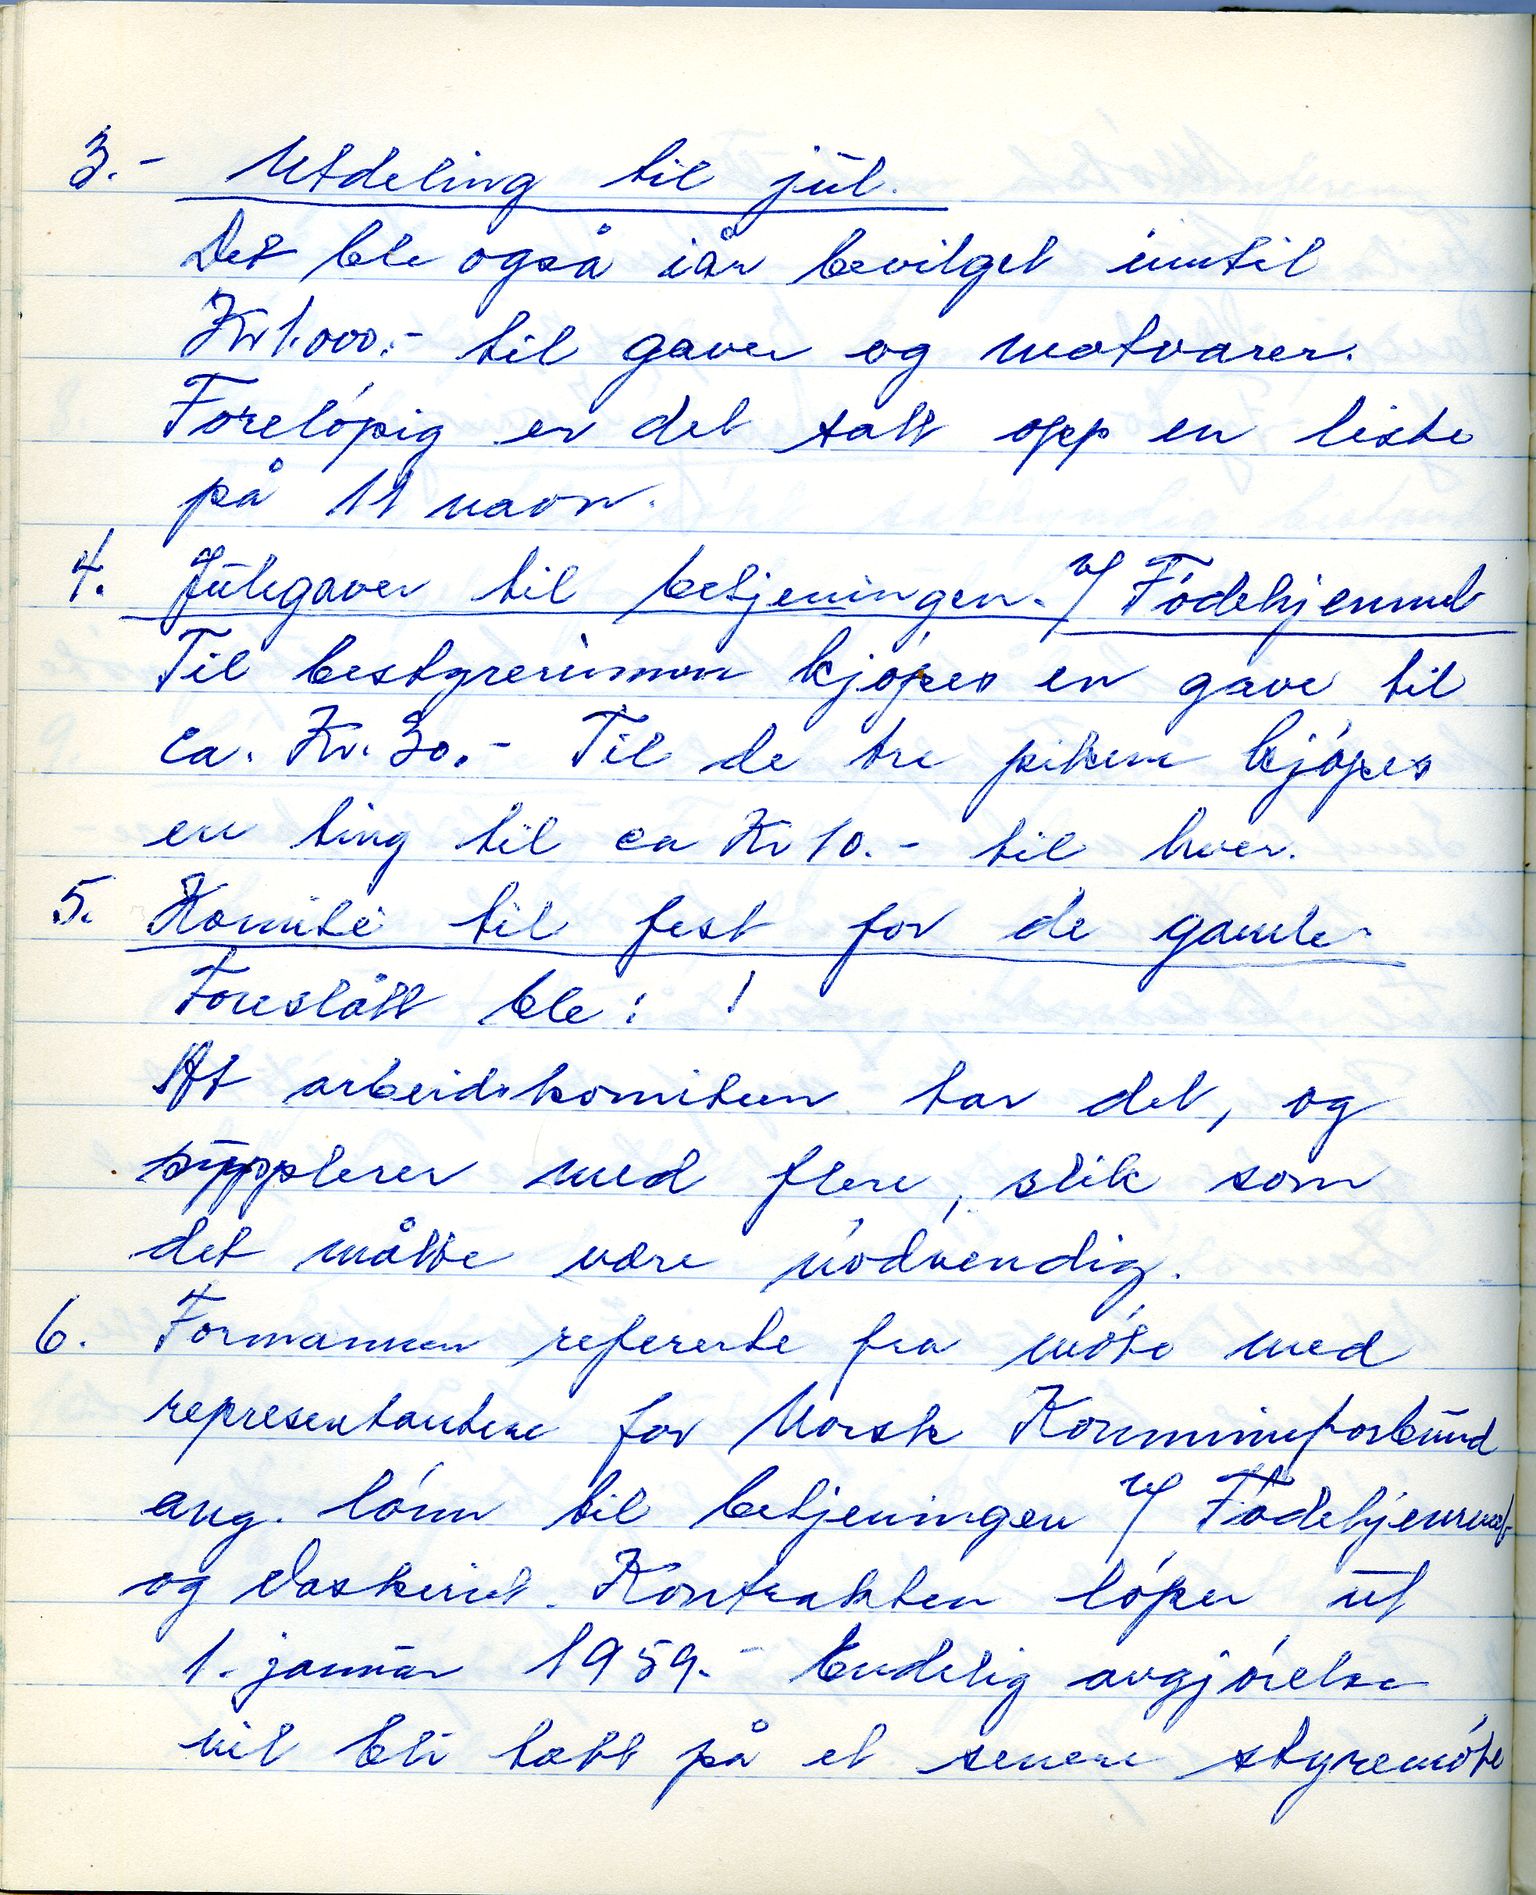 3.- Utdeling til jul.
Det ble også iår bevilget inntil
Kr 1.000.- til gaver og matvarer.
Foreløpig er det satt opp en liste
på 11 navn.
4. Julegaver til betjeningen. v/ Fødehjemmet
Til bestyrerinnen kjøpes en gave til
ca. Kr. 30.- Til de tre pikene kjøpes
en ting til ca Kr 10.- til hver.
5. Komité til fest for de gamle
Foreslått ble:
At arbeidskomiteen tar det, og
supplerer med flere, slik som
det måtte være nødvendig.
6. Formannen refererte fra møte med
representantene for Norsk Kommuneforbund
ang. lønn til betjeningen v/ Fødehjemmet
og Vaskeriet. Kontrakten løper ut
1. januar 1959.- Endelig avgjørelse
vil bli tatt på et senere styremøte